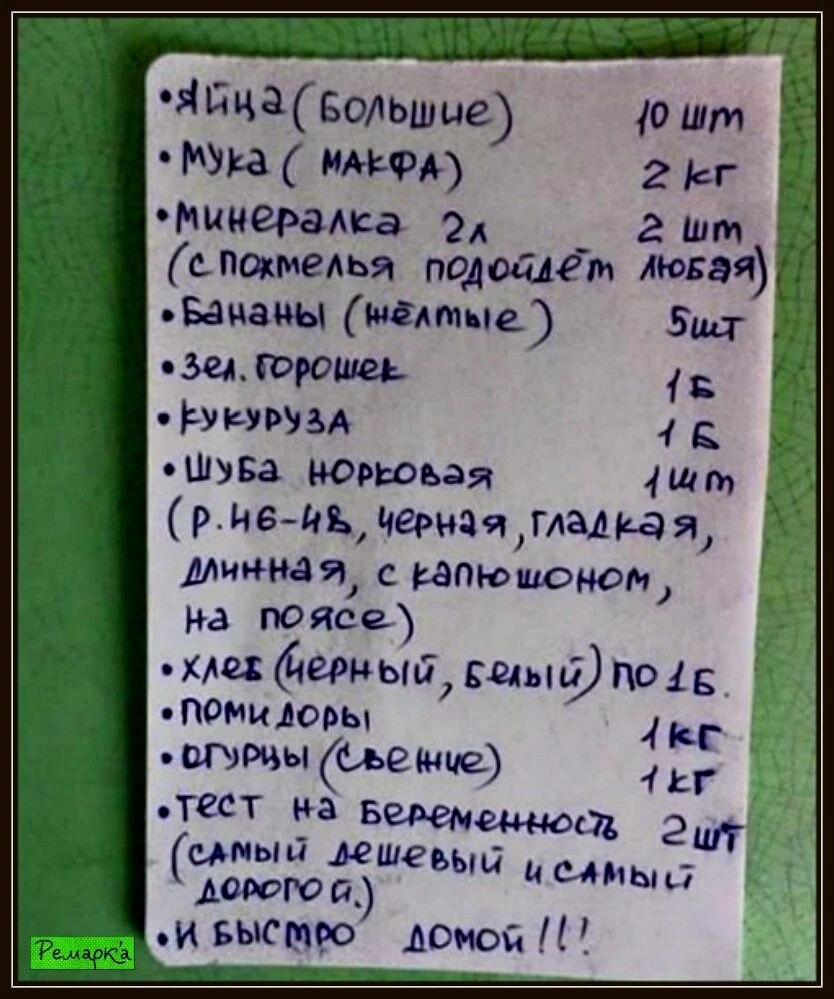 •Яйца (большие) 10 шт
•Мука (МАКФА) 2 кг
•минералка 2л 2 шт
(с похмелья подойдёт любая)
•Бананы (жёлтые) 5шт
•Зел. горошек 1Б
•Кукуруза 1Б
•Шуба норковая 1шт
(р.46-48, черная, гладкая,
длинная, с капюшоном,
на поясе)
•хлеб (черный, белый) по 1Б.
•помидоры 1кг
•огурцы (свежие) 1кг
•тест на беременность 2шт
(самый дешевый и самый
дорогой.)
•И быстро домой!!!
Ремарк'а